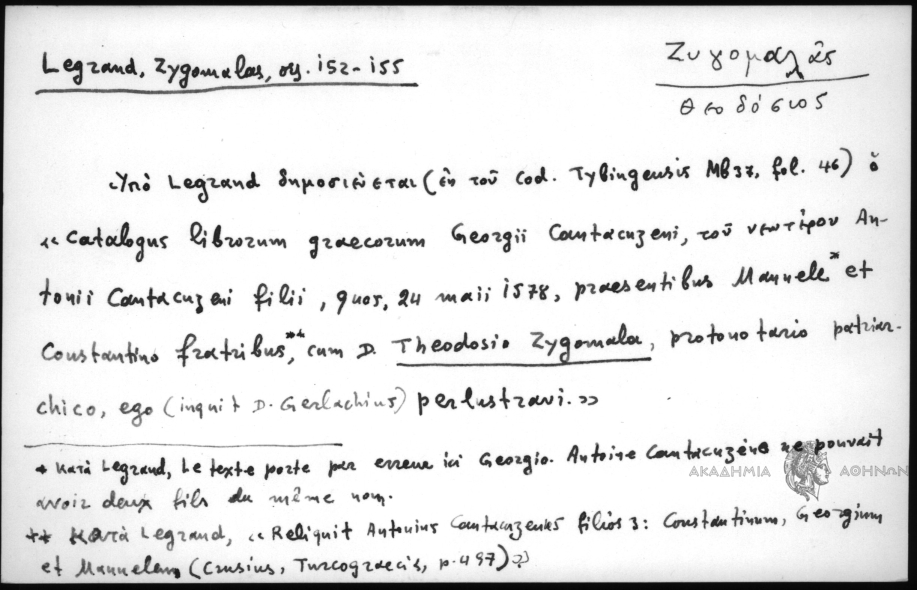 Legrand, Zygomalas, σσ. 152-155
Ζυγομαλᾶς
Θεοδόσιος
Ὑπὸ Legrand δημοσιεύεται (ἐκ τοῦ Cod. Tybingensis Mb37, fol. 46) ὁ
«Catalogus librorum graecorum Georgii Cantacuzeni, τοῦ νεωτέρου An-
tonii Cantacuzeni filii, quos, 24 maii 1578, praesentibus Manuele* et
Constantino fratribus,** cum D. Theodosio Zygomala, protonotario patriar-
chico, ego (inquit D. Gerlachius) perlustravi.»
* κατὰ Legrand, Le texte porte par erreur ici Georgio. Antoine Cantacuzène ne pouvait
avoir deux fils du même nom.
** κατὰ Legrand, «Reliquit Antonius Cantacuzenus filios 3: Constantinum, Georgium
et Manuelem (Crusius, Turcograecia, p. 497)»
ΑΚΑΔΗΜΙΑ ΑΘΗΝΩΝ